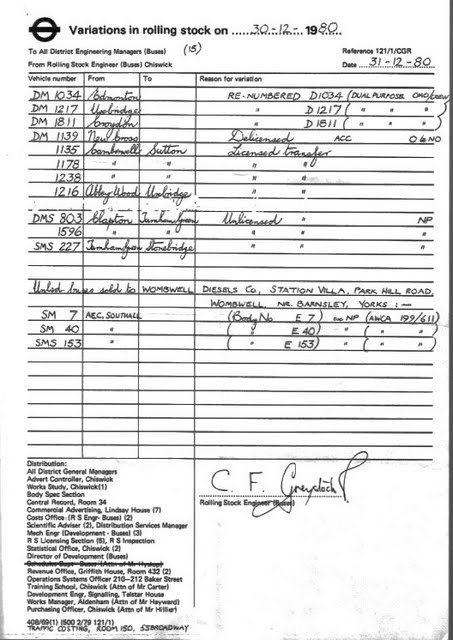 Variations in rolling stock on 30-12- 1980
To All District Engineering Managers (Buses) (15) Reference 121/1/CGR
From Rolling Stock Engineer (Buses) Chiswick Date 31-12-80
Vehicle number From To Reason for variation
DM 1034 Edmonton RE-NUMBERED D1034 (DUAL PURPOSE OMO/CREW
DM 1217 Uxbridge " D1217 ( " " " )
DM 1811 Croydon " D1811 ( " " " )
DM 1139 New Cross Delicensed ACC
1135 Camberwell Sutton Licensed transfer
1178 " " " "
1238 " " " "
1216 Abbey Wood Uxbridge " "
DMS 803 Clapton Turnham Green Unlicensed " NP
1596 " " " " "
SMS 227 Turnham Green Stonebridge " " "
Unlsd buses sold to WOMBWELL DIESELS CO, STATION VILLA, PARK HILL ROAD,
WOMBWELL, NR. BARNSLEY, YORKS :—
SM 7 AEC, SOUTHALL (Body No E 7) ex NP (AWCA 199/611)
SM 40 " ( " E 40) " ( " " )
SMS 153 " ( " E 153) " ( " " )
Distribution:
All District General Managers
Advert Controller, Chiswick
Works Study, Chiswick(1)
Body Spec Section
Central Record, Room 34
Commercial Advertising, Lindsay House (7)
Costs Office (R S Engr- Buses) (2)
Scientific Adviser (2), Distribution Services Manager
Mech Engr (Development - Buses) (3)
R S Licensing Section (5), R S Inspection
Statistical Office, Chiswick (2)
Director of Development (Buses)
Schedules Supt - Buses (Attn of Mr Hyslop)
Revenue Office, Griffith House, Room 432 (2)
Operations Systems Officer 210–212 Baker Street
Training School, Chiswick (Attn of Mr Carter)
Development Engr, Signalling, Telstar House
Works Manager, Aldenham (Attn of Mr Hayward)
Purchasing Officer, Chiswick (Attn of Mr Hillier)
C. F. Greystock
Rolling Stock Engineer (Buses)
408/69(1) (500 2/79 121/1)
TRAFFIC COSTING, ROOM 150, 55 BROADWAY